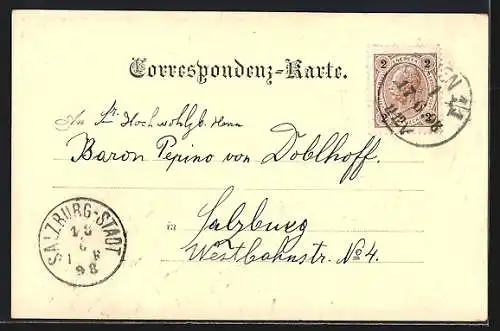 Correspondenz-Karte.
2 2
An Sr. Hochwohlgb. Herrn
Baron Pepino von Doblhoff.
in Salzburg
Westbahnstr. No 4.
SALZBURG-STADT
18
6
1
98